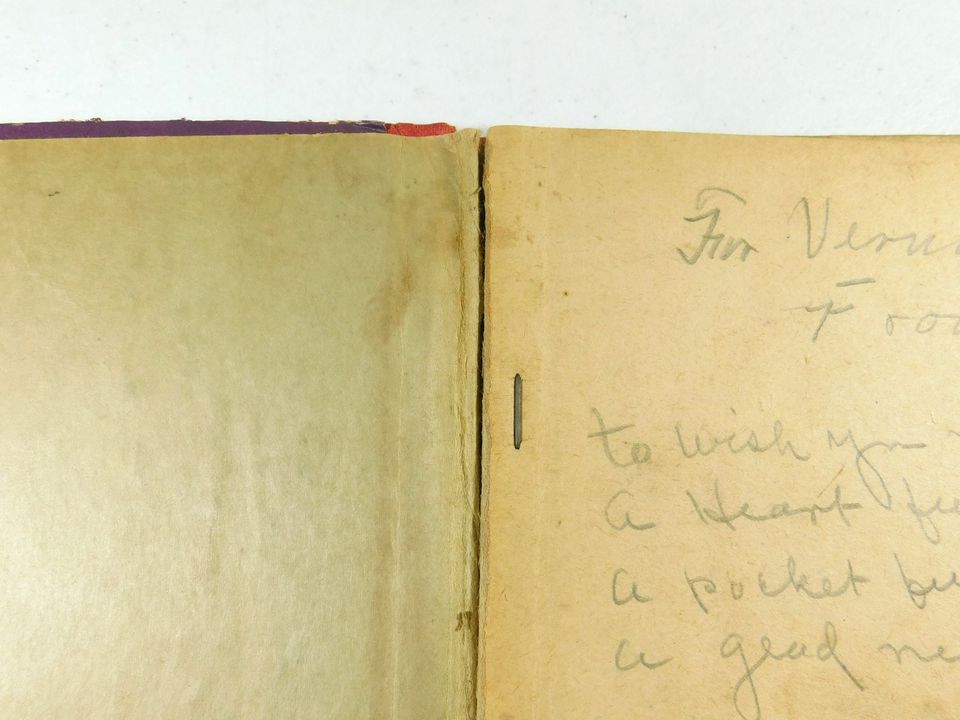 For Vern
Froo
to wish you
a Heart fu
a pocket fu
a glad ne